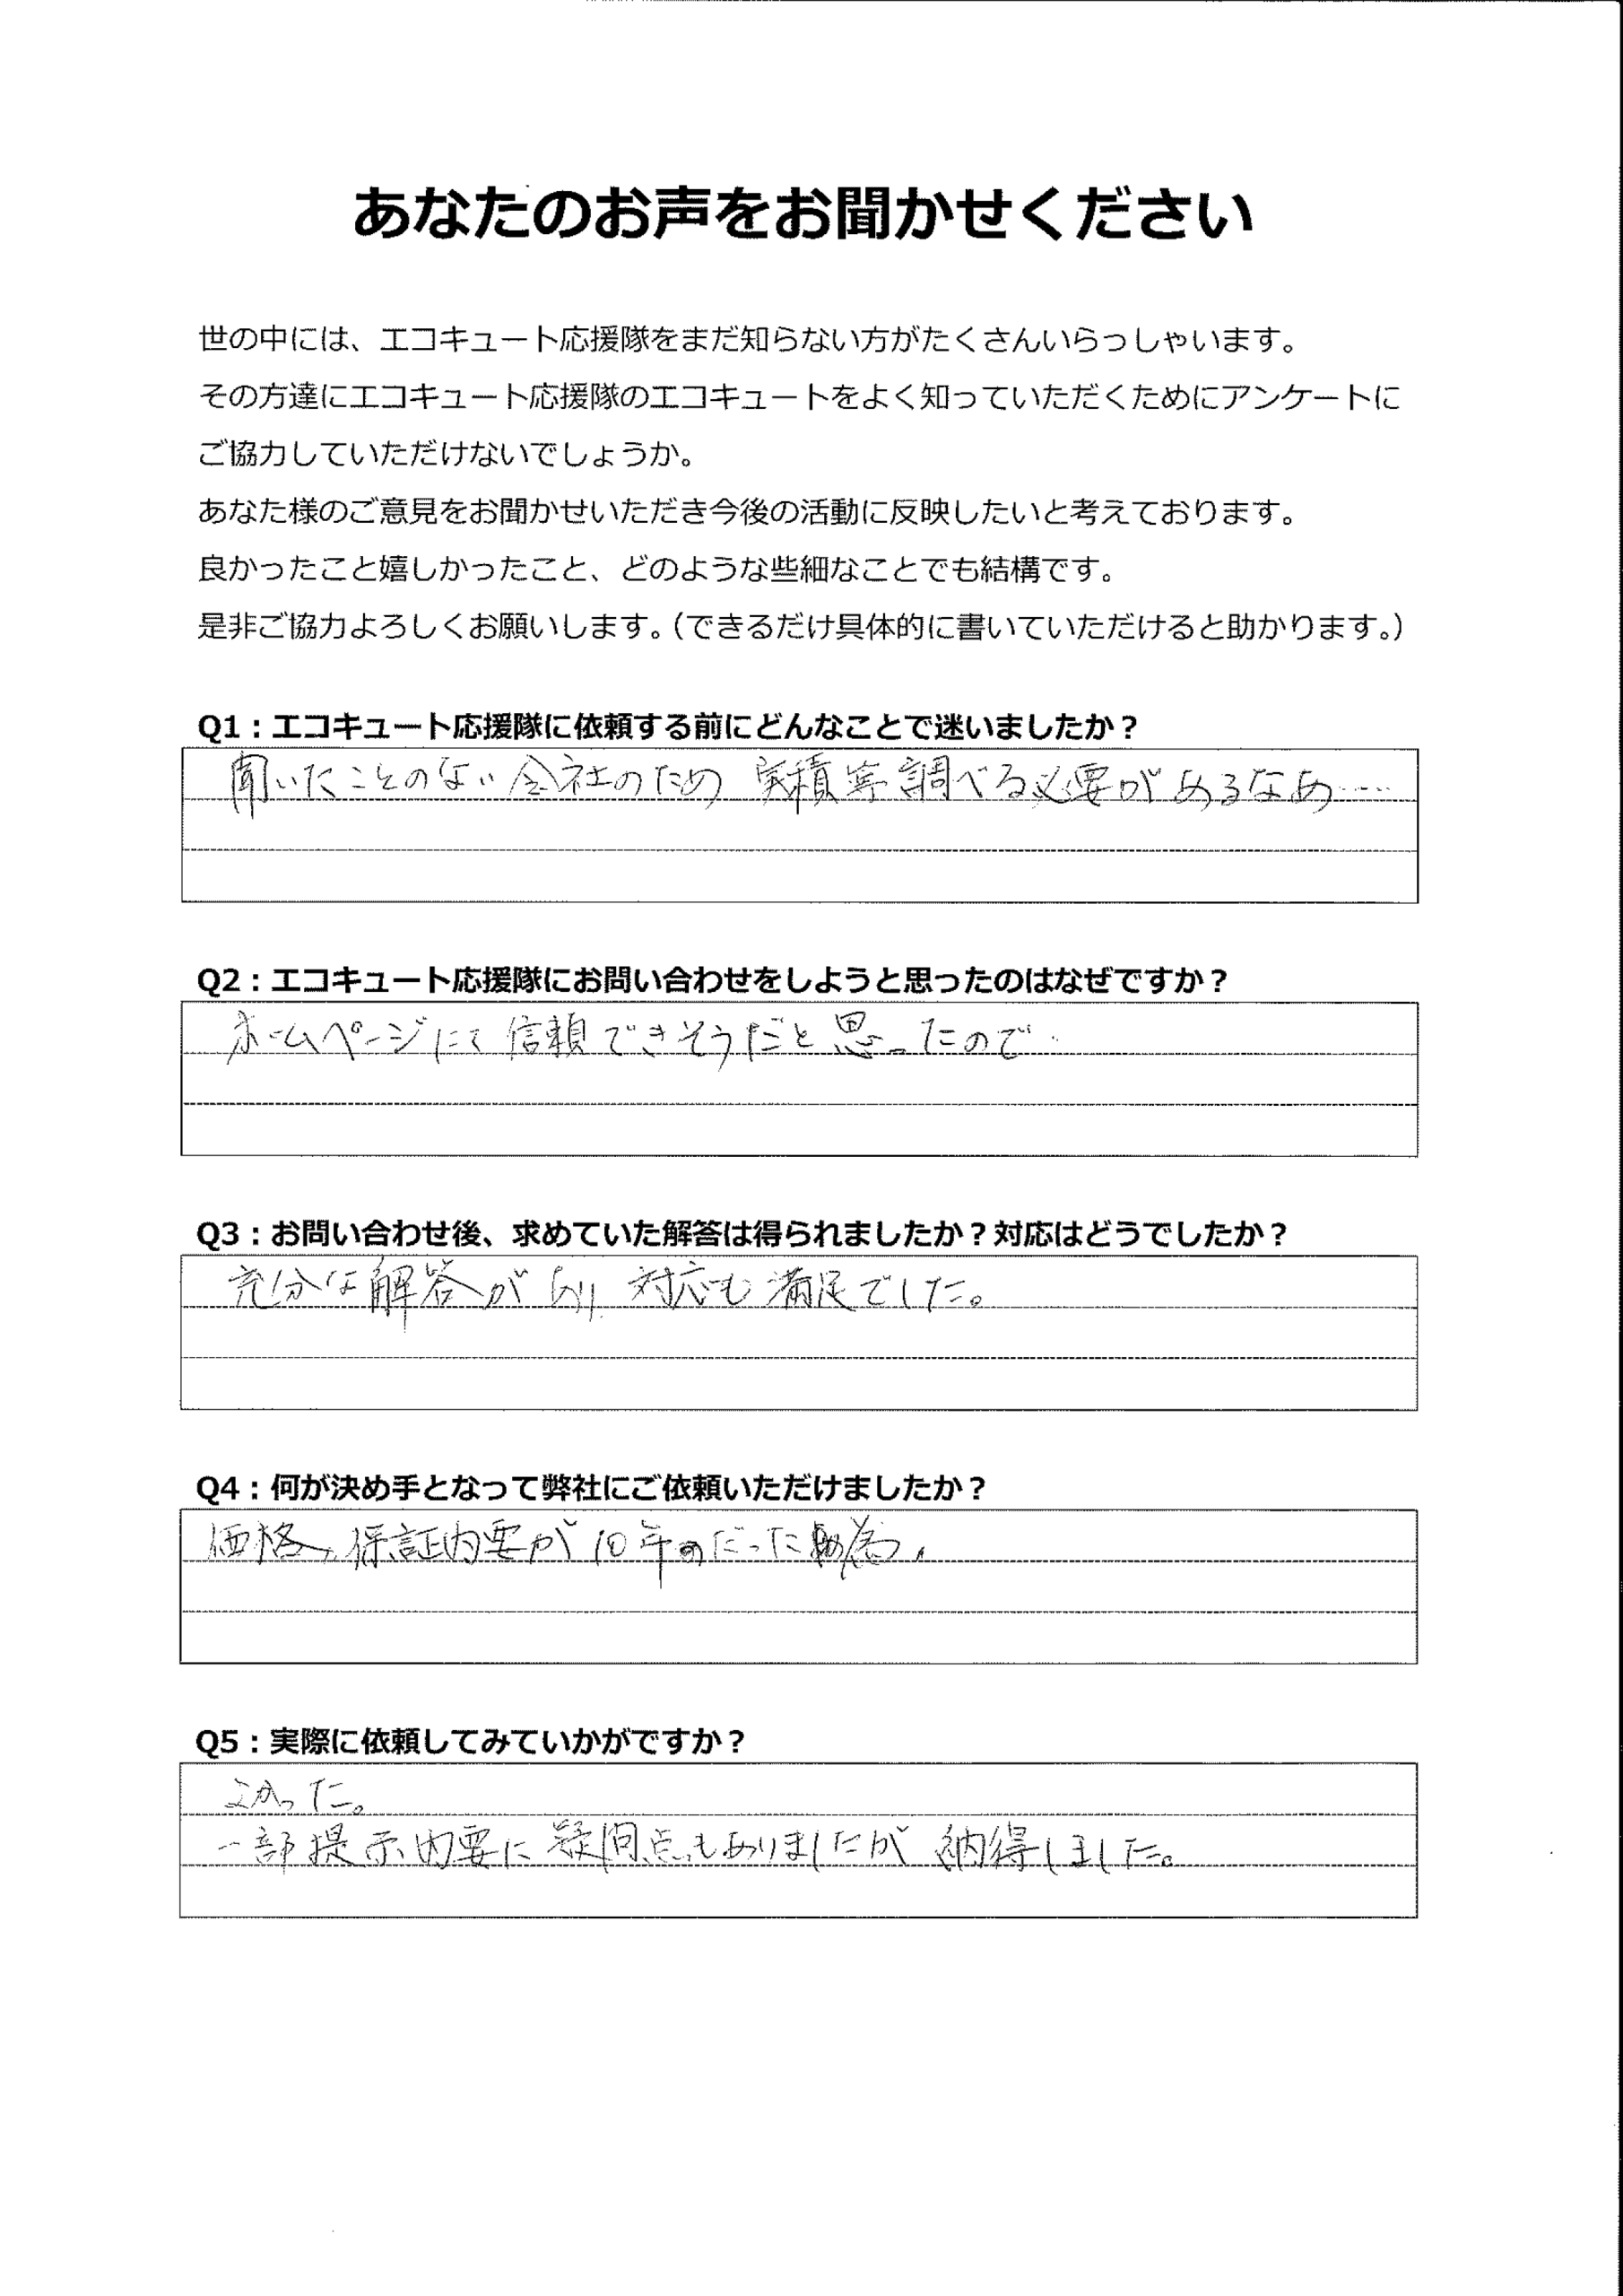 あなたのお声をお聞かせください
世の中には、エコキュート応援隊をまだ知らない方がたくさんいらっしゃいます。
その方達にエコキュート応援隊のエコキュートをよく知っていただくためにアンケートに
ご協力していただけないでしょうか。
あなた様のご意見をお聞かせいただき今後の活動に反映したいと考えております。
良かったこと嬉しかったこと、どのような些細なことでも結構です。
是非ご協力よろしくお願いします。（できるだけ具体的に書いていただけると助かります。）
Q1：エコキュート応援隊に依頼する前にどんなことで迷いましたか？
聞いたことのない会社のため 実積等調べる必要があるなあ……
Q2：エコキュート応援隊にお問い合わせをしようと思ったのはなぜですか？
ホームページにて信頼できそうだと思ったので…
Q3：お問い合わせ後、求めていた解答は得られましたか？対応はどうでしたか？
充分な解答があり、対応も満足でした。
Q4：何が決め手となって弊社にご依頼いただけましたか？
価格、保証内要が10年だった為。
Q5：実際に依頼してみていかがですか？
よかった。
一部提示内要に疑問点もありましたが納得しました。